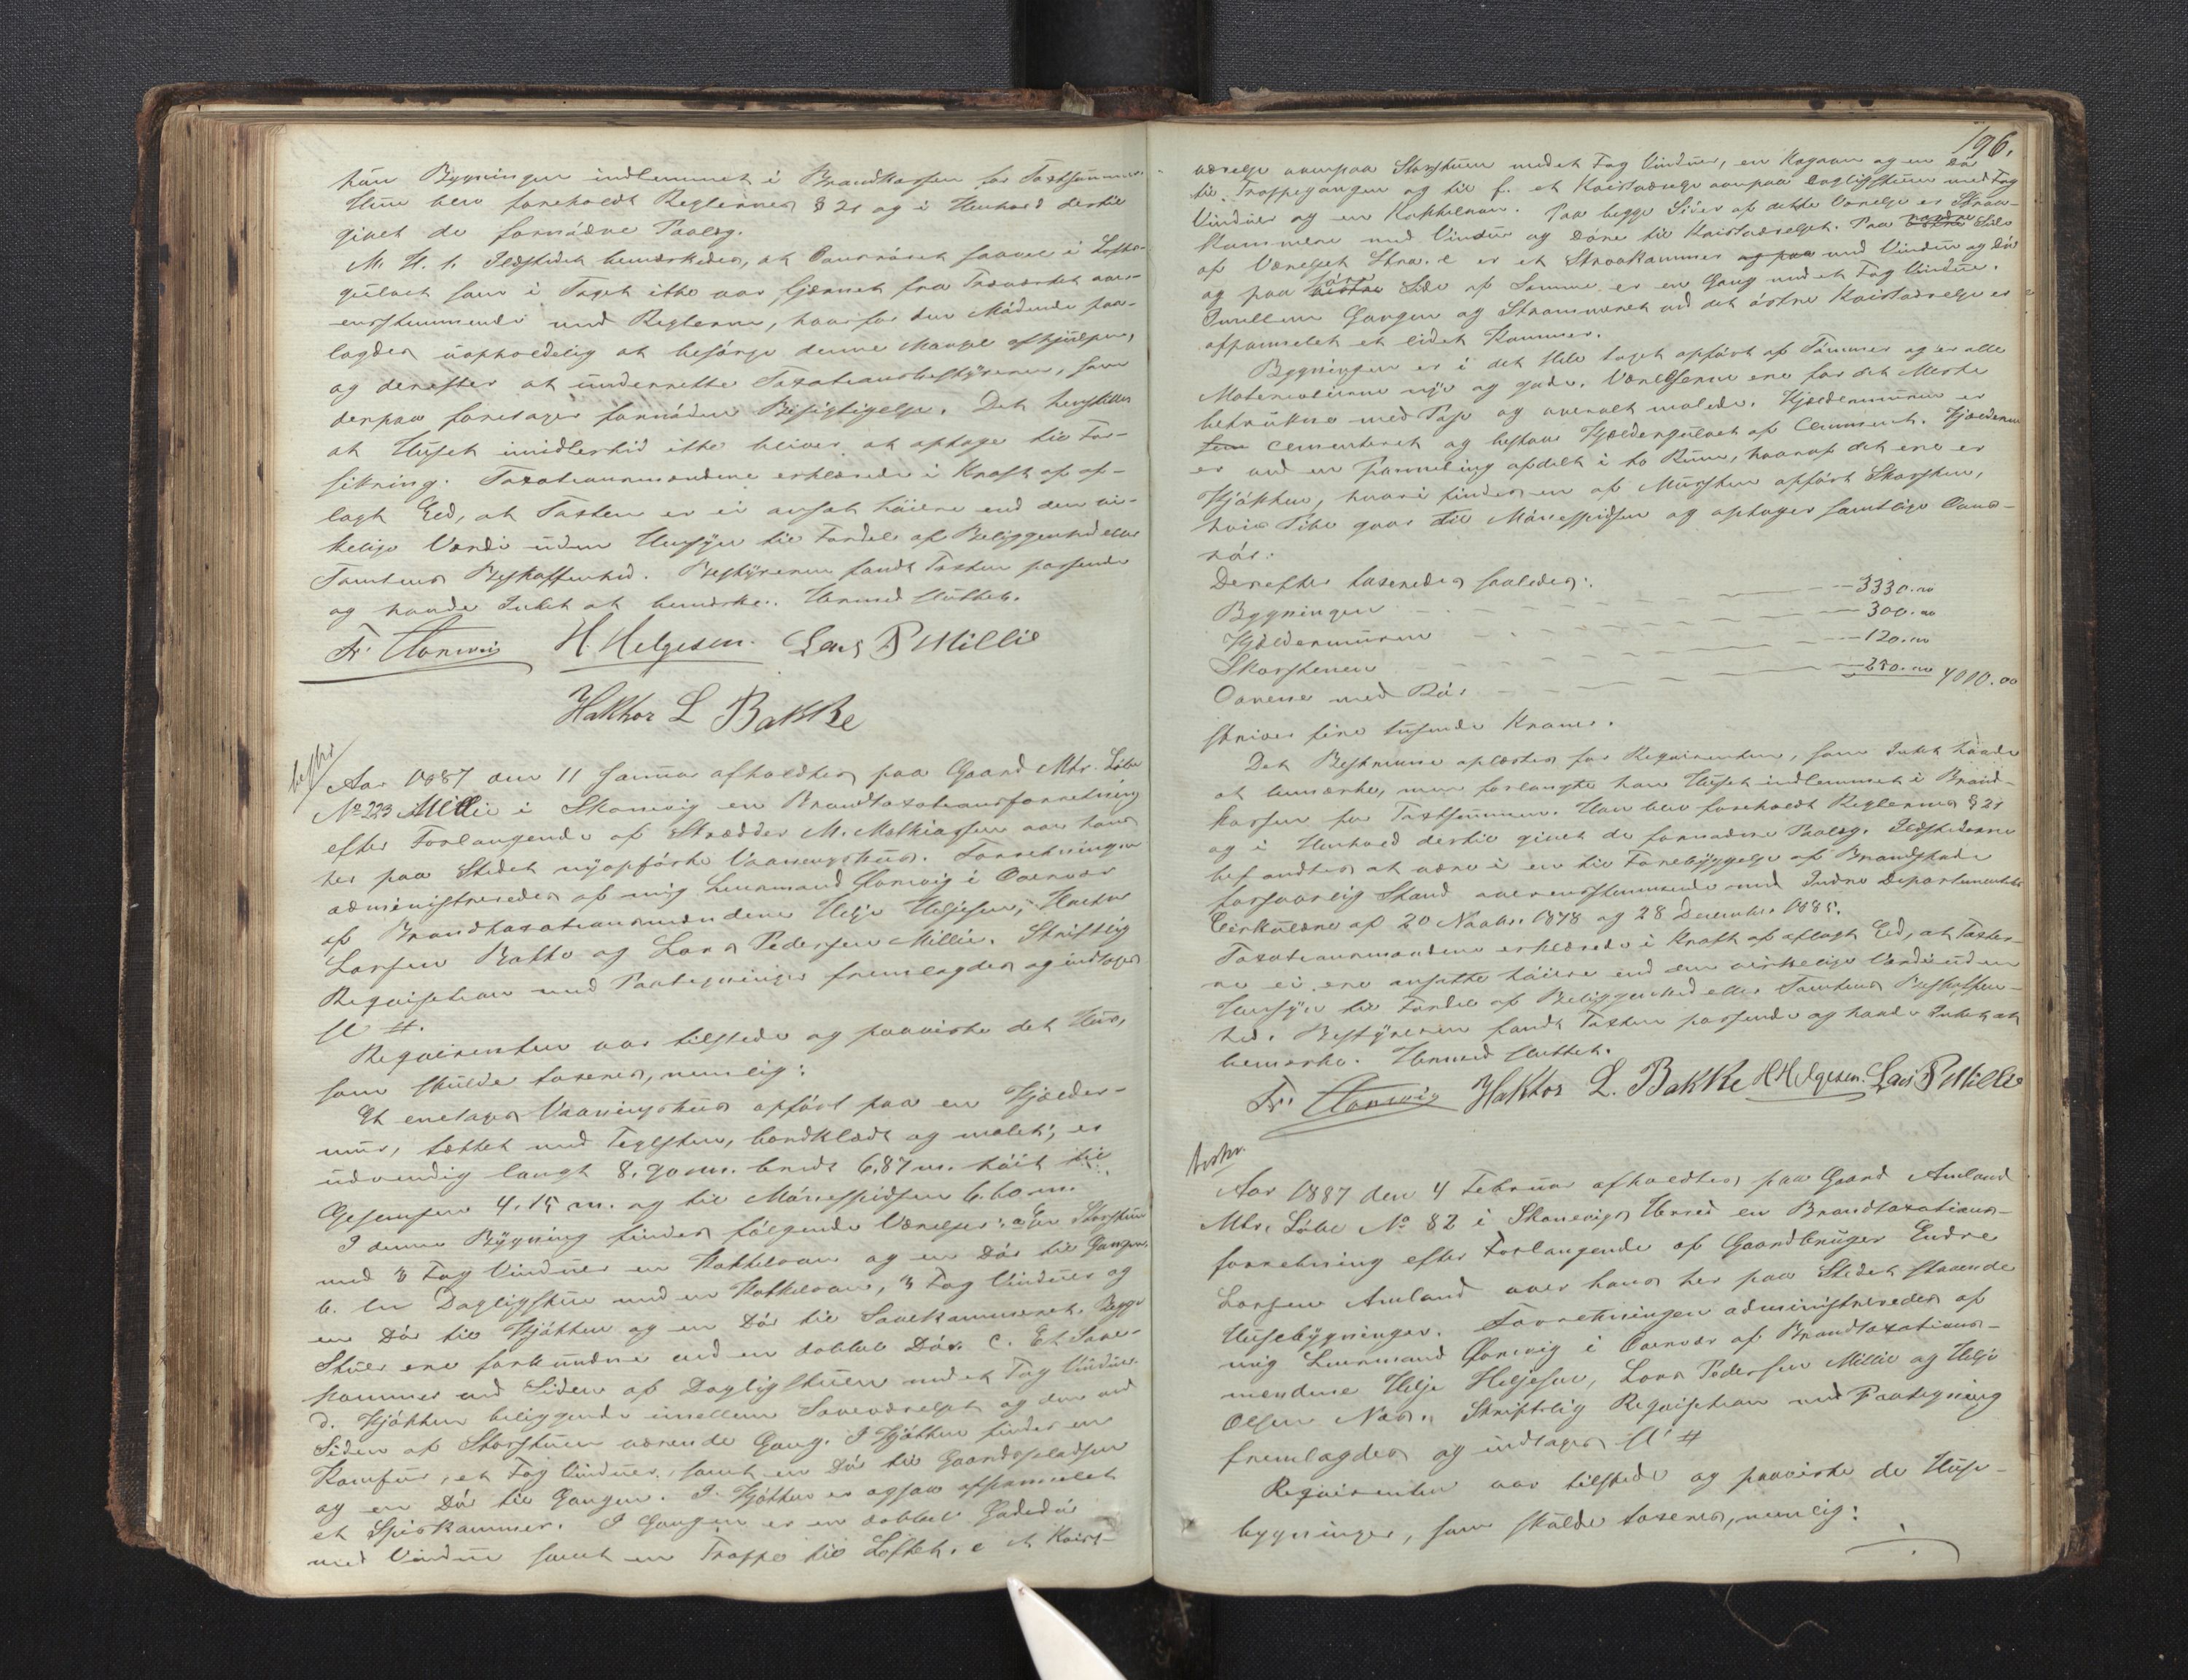 han Bygningen indlemmet i Brandkassen for Taxtsummen.
Hun blev foreholdt Reglernes § 21 og i Henhold dertil
givet de fornødne Paalæg.
M. H. t. Ildstedet bemærkedes, at Ovnrøret saavel i Lofts-
gulvet som i Taget ikke var fjærnet fra Træværket over-
ensstemmende med Reglerne, hvorfor den Mødende paa-
lagdes uopholdelig at besørge denne Mangel afhjulpen,
og derefter at underrette Taxationsbestyreren, som
derpaa foretager fornøden Besigtigelse. Det henstilles
at Huset imidlertid ikke bliver at optage til For-
sikring. Taxationsmændene erklærede i Kraft af af-
lagt Eed, at Taxten er ei ansat høiere end den vir-
kelige Værdi uden Hensyn til Fordel af Beliggenhed eller
Tomtens Beskaffenhed. Bestyreren fandt Taxten passende
og havde Intet at bemærke. Hermed sluttet.
Fr. H. Helgesen. Lars P Millie
Hakhor L Bakke
beskr
Aar 1887 den 11 Januar afholdtes paa Gaard Mtr. Løbe
No 223 Millie i Skonevig en Brandtaxationsforretning
efter Forlangende af Skrædder M. Mathiassen over hans
her paa Stedet nyopførte Vaaningshus. Forretningen
administreredes af mig Lensmand i
af Brandtaxationsmændene Helje Heljesen, Haktor
Larsen Bakke og Lars Pedersen Millie. Skriftlig
Reqvisition med Paategninger fremlagdes og indtages
sl #.
Reqvirenten var tilstede og paaviste det Hus,
som skulde taxeres, nemlig:
Et enetages Vaaningshus opført paa en Kjælder-
mur, tækket med Teglsten, bordklædt og malet; er
udvendig langt 8.90 m. bredt 6.87 m. høit til
Gesimsen 4.15 m. og til Mønespidsen 6.60 m.
I denne Bygning findes følgende Værelser: a En Storstue
med 3 Fag Vinduer en Kakkelovn og en Dør til Gangen.
b. En Dagligstue med en Kakkelovn, 3 Fag Vinduer og
en Dør til Kjøkken og en Dør til Sovekammeret. Begge
Stuer ere forbundne ved en dobbel Dør. C. Et Sove-
kammer ved Siden af Dagligstuen med et Fag Vindue.
d. Kjøkken beliggende imellem Soveværelset og den ved
Siden af Storstuen værende Gang. I Kjøkken findes en
Komfur, et Fag Vinduer, samt en Dør til Gaardspladsen
og en Dør til Gangen. I Kjøkken er ogsaa afpanelet
et Spiskammer. I Gangen er en dobbel Gadedør
med Vindue samt en Trappe til Loftet. e et Kvist-
196.
værelse ovenpaa Storstuen med et Fag Vinduer, en Kogeovn og en Dør
til Trappegangen og til f. et Kvistværelse ovenpaa Dagligstuen med Fag
Vinduer og en Kakkelovn. Paa begge Sider af dette Værelse er Skraa-
kammere med Vindue og Døre til Kvistværelset. Paa østre nordre Side
af Værelset Litra. e er et Skraakammer og paa med Vindue og Dør
og paa vestre søre Side af Samme er en Gang med et Fag Vindue.
Imellem Gangen og Skrammeret ved det østre Kvistværelse er
afpanelet et lidet Kammer.
Bygningen er i det Hele taget opført af Tømmer og er alle
Materialierne nye og gode. Værelserne ere for det Meste
betrukne med Pap og overalt malede. Kjældermuren er
cementeret og bestaar Kjældergulvet af Cement. Kjælderen
er ved en Panneling afdelt i to Rum, hvoraf det ene er
Kjøkken, hvori findes en af Mursten opført Skorsten,
hvis Pibe gaar til Mønespidsen og optager samtlige Ovns-
rør.
Derefter taxeredes saaledes:
Bygningen — 3330.00
Kjældermuren — 300.00
Skorstenen — 120.00
Ovnene med Rør — 250.00 4000.00
skriver fire tusende Kroner.
Det Beskrevne oplæstes for Reqvirenten, som Intet havde
at bemærke, men forlangte han Huset indlemmet i Brand-
kassen for Taxtsummen. Han blev foreholdt Reglernes § 21
og i Henhold dertil givet de fornødne Paalæg. Ildstederne
befandtes at være i en til Forebyggelse af Brandskade
forsvarlig Stand overensstemmende med Indre Departements
Cirkulære af 20 Novbr. 1878 og 28 December 1885.
Taxationsmændene erklærede i Kraft af aflagt Eed, at Taxter-
ne ei ere ansatte høiere end den virkelige Værdi uden
Hensyn til Fordel af Beliggenhed eller Tomtens Beskaffen-
hed. Bestyreren fandt Taxten passende og havde Intet at
bemærke. Hermed sluttet.
Fr. Haktor L. Bakke H Helgesen. Lars P Millie
beskr.
Aar 1887 den 4 Februar afholdtes paa Gaard Amland
Mtr. Løbe No 82 i Skonevigs Herred en Brandtaxations-
forretning efter Forlangende af Gaardbruger Endre
Larsen Amland over hans her paa Stedet staaende
Husebygninger. Forretningen administreredes af
mig Lensmand i af Brandtaxations-
mændene Helje Heljesen, Lars Pedersen Millie og Helje
Olsen Næs. Skriftelig Reqvisition med Paategning
fremlagdes og indtages sl #
Reqvirenten var tilstede og paaviste de Huse-
bygninger, som skulde taxeres, nemlig: